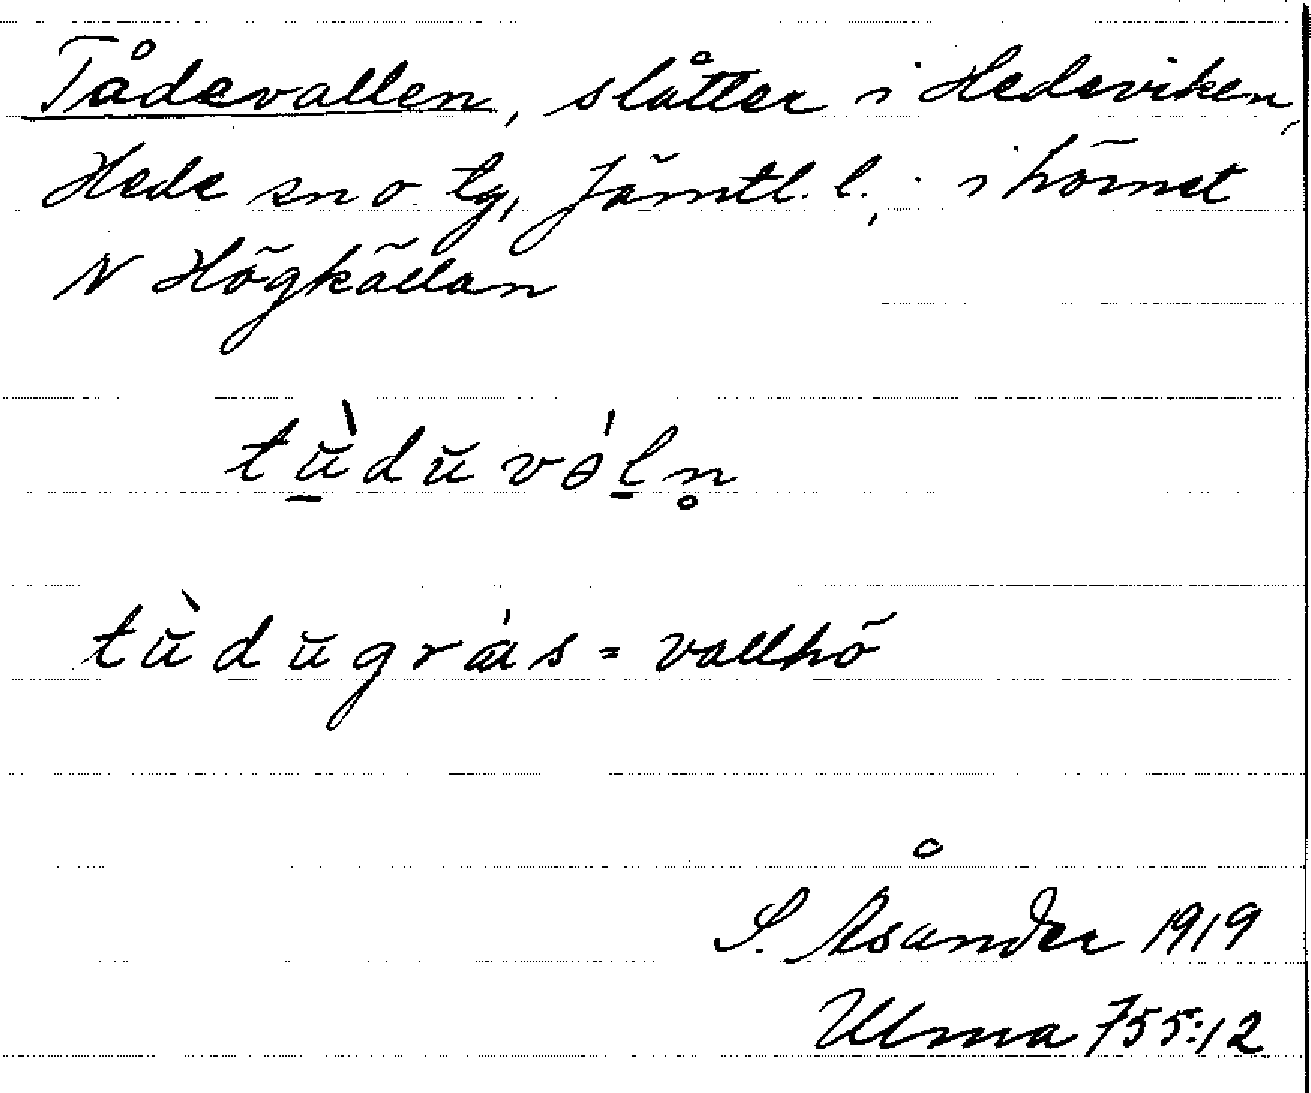 Tådevallen, slåtter i Hedeviken,
Hede sn o. tg, Jämtl. l.; i hörnet
N Högkällan
tŭ̱̀dŭvɵ́ḻn̥
tŭ̀dŭgrás = vallhö
S. Åsander 1919
Ulma 755:12